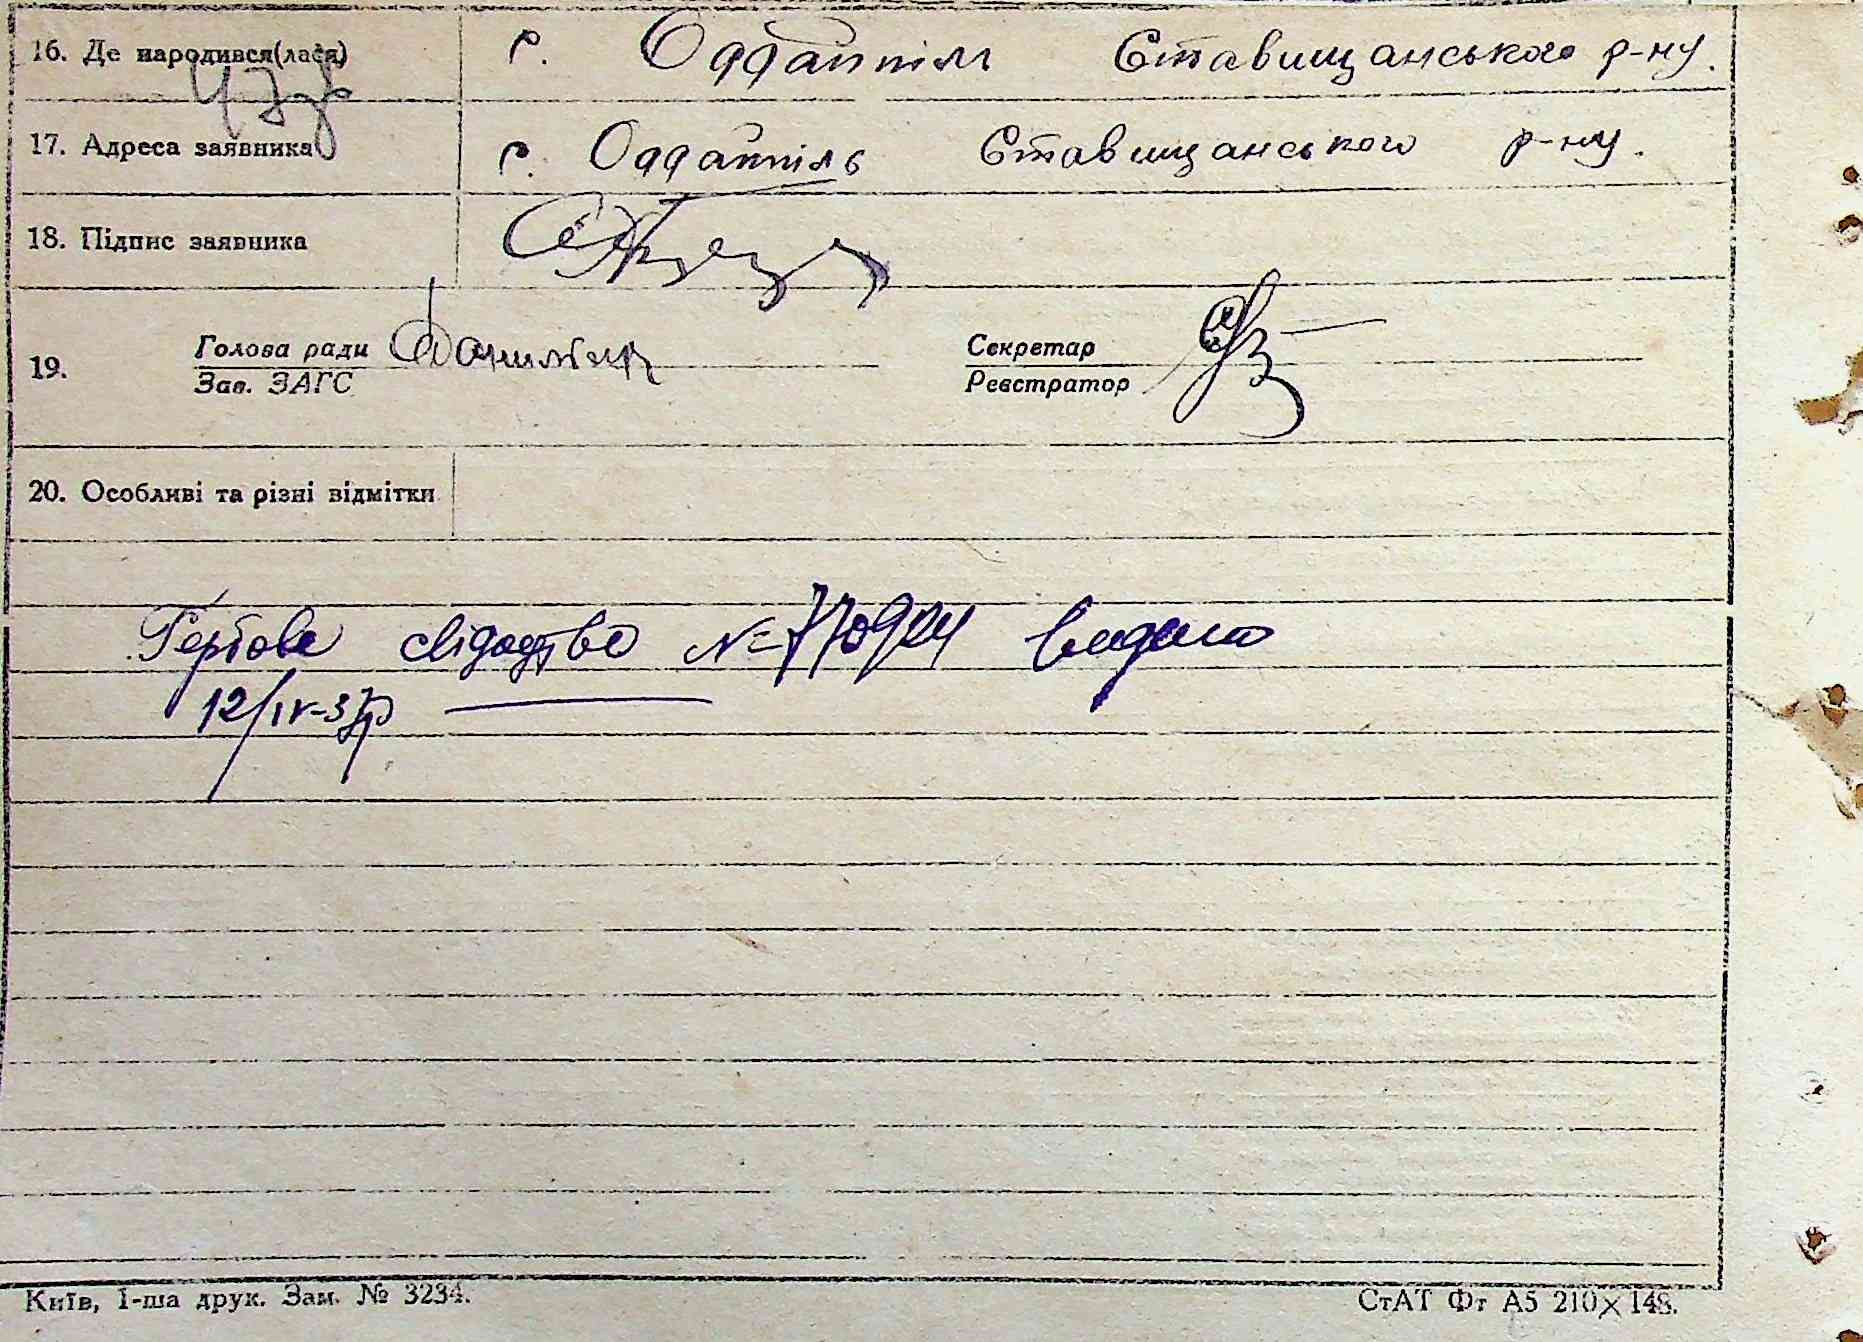 16. Де народився(лася) с. Оддайпіль Ставищанського р-ну.
17. Адреса заявника с. Оддайпіль Ставищанського р-ну.
18. Підпис заявника
19. Голова ради Секретар
Зав. ЗАГС Реєстратор
20. Особливі та різні відмітки
Гербове свідодтво № 770924 видано
12/IV-37р
Київ, 1-ша друк. Зам. № 3234. СтАТ Фт А5 210×148.